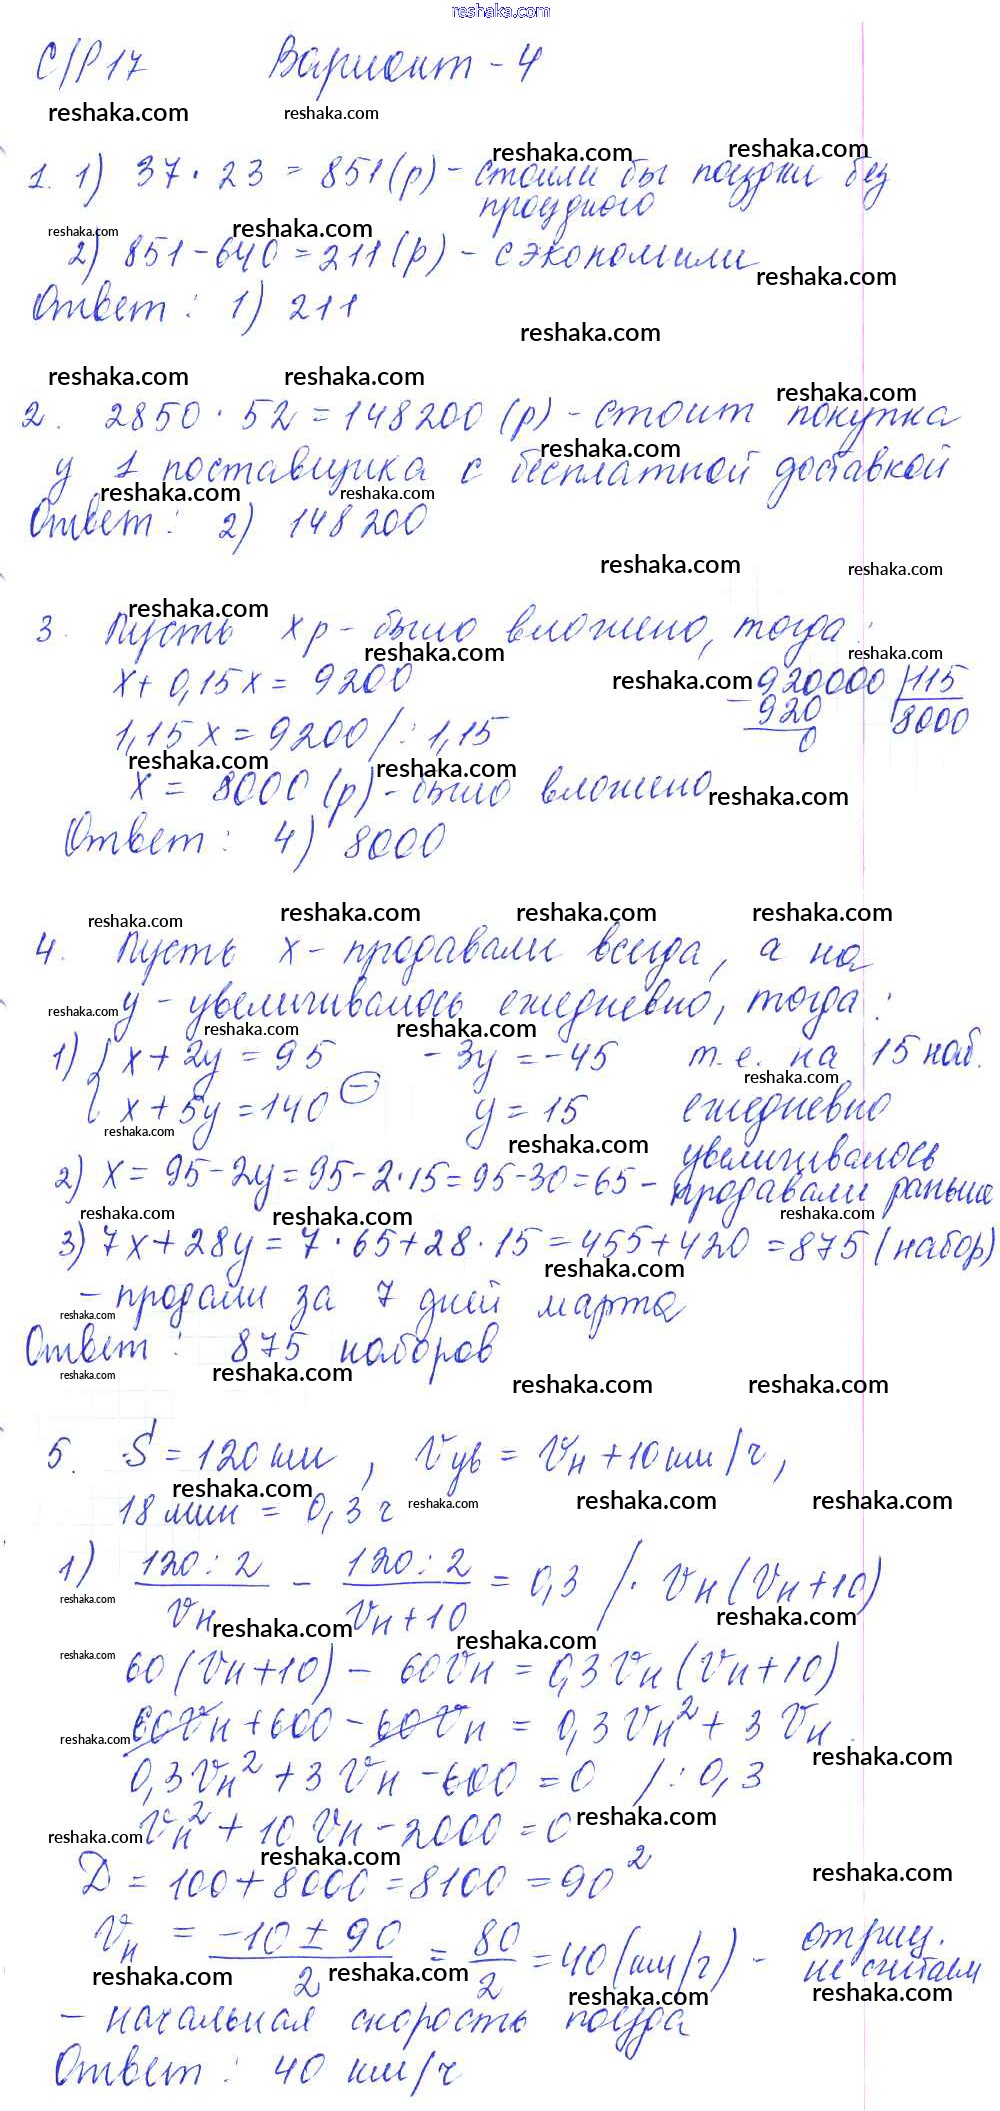 reshaka.com
С/Р 17 Вариант - 4
1. 1) 37 · 23 = 851 (р) - стоили бы поездки без
проездного
2) 851 - 640 = 211 (р) - сэкономили
Ответ: 1) 211
2. 2850 · 52 = 148200 (р) - стоит покупка
у 1 поставщика с бесплатной доставкой
Ответ: 2) 148200
3. Пусть х р - было вложено, тогда:
х + 0,15х = 9200
920000 | 115
- 920 8000
0
1,15х = 9200 /: 1,15
х = 8000 (р) - было вложено
Ответ: 4) 8000
4. Пусть х - продавали всегда, а на
у - увеличивалось ежедневно, тогда:
1) { х + 2у = 95 - 3у = -45 т.е. на 15 наб.
х + 5у = 140 у = 15 ежедневно
увеличивалось
2) х = 95 - 2у = 95 - 2·15 = 95 - 30 = 65 - продавали раньше
3) 7х + 28у = 7 · 65 + 28 · 15 = 455 + 420 = 875 (набор)
- продали за 7 дней марта
Ответ: 875 наборов
5. S = 120 км, Vув = Vн + 10 км/ч,
18 мин = 0,3 ч
1) 120:2 / Vн - 120:2 / Vн + 10 = 0,3 /· Vн (Vн + 10)
60 (Vн + 10) - 60Vн = 0,3 Vн (Vн + 10)
60Vн + 600 - 60Vн = 0,3 Vн² + 3 Vн
0,3Vн² + 3Vн - 600 = 0 /: 0,3
Vн² + 10 Vн - 2000 = 0
D = 100 + 8000 = 8100 = 90²
Vн = -10 ± 90 / 2 = 80 / 2 = 40 (км/ч) - отриц.
не считаем
- начальная скорость поезда
Ответ: 40 км/ч